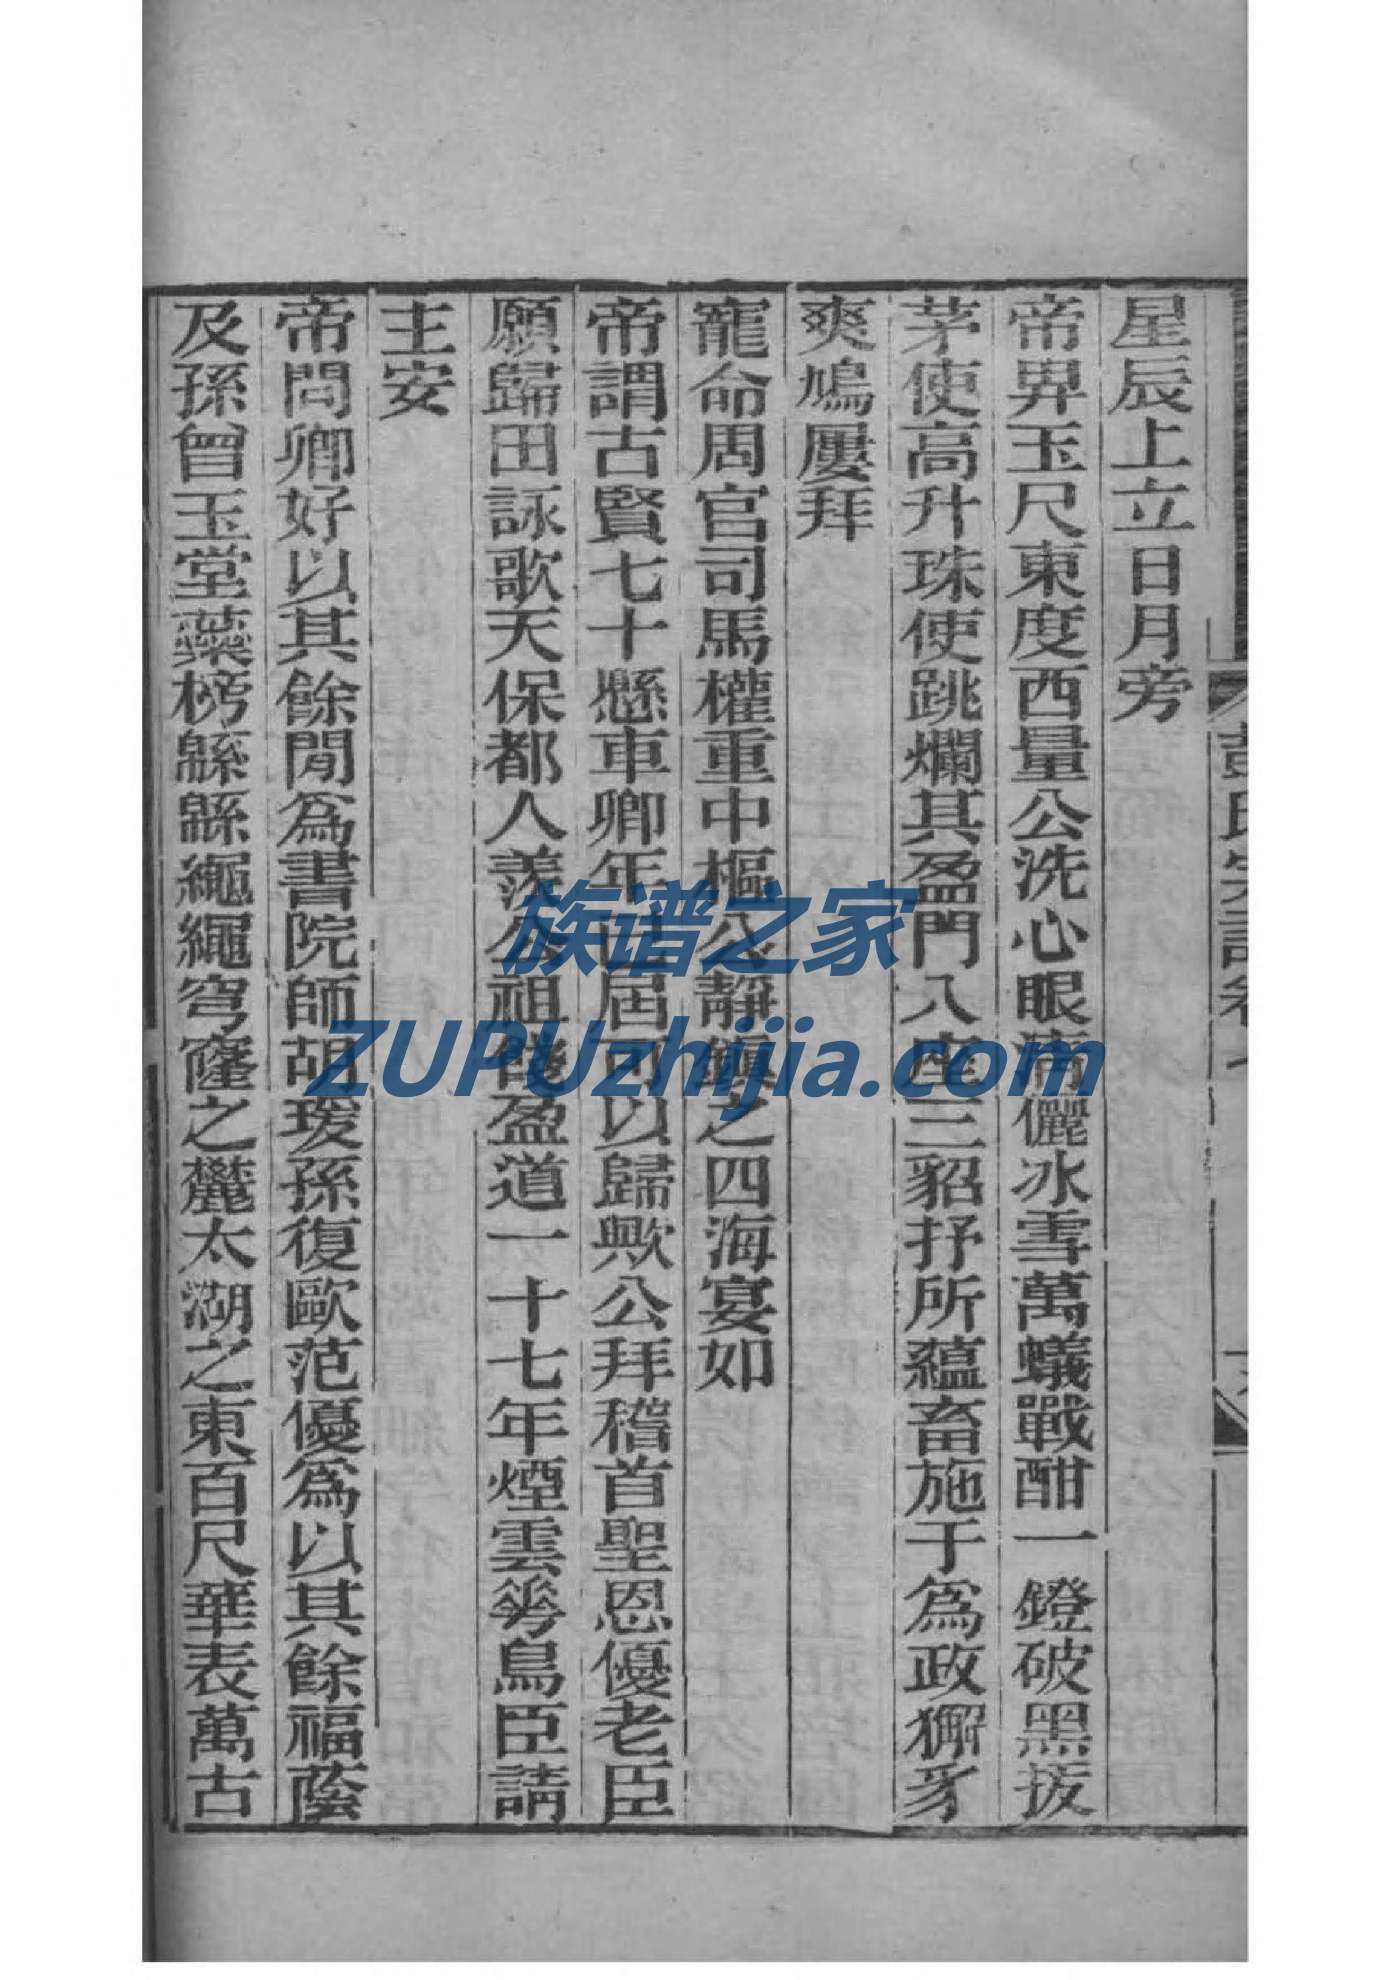 星辰上立日月旁
帝畀玉尺東度西量公洗心眼滴儷冰雪萬蟻戰酣一鐙破黑拔
茅使高升珠使跳爛其盈門八座三貂抒所蘊畜施于為政獬豸
爽鳩屢拜
寵命周官司馬權重中樞公靜鎮之四海宴如
帝謂古賢七十懸車卿年已屆可以歸歟公拜稽首聖恩優老臣
願歸田詠歌天保都人羨公祖餞盈道一十七年煙雲花鳥臣請
主安
帝問卿好以其餘閒為書院師胡瑗孫復歐范優為以其餘福蔭
及孫曾玉堂蘂榜緜緜繩繩穹窿之麓太湖之東百尺華表萬古
族谱之家
ZUPUzhijia.com